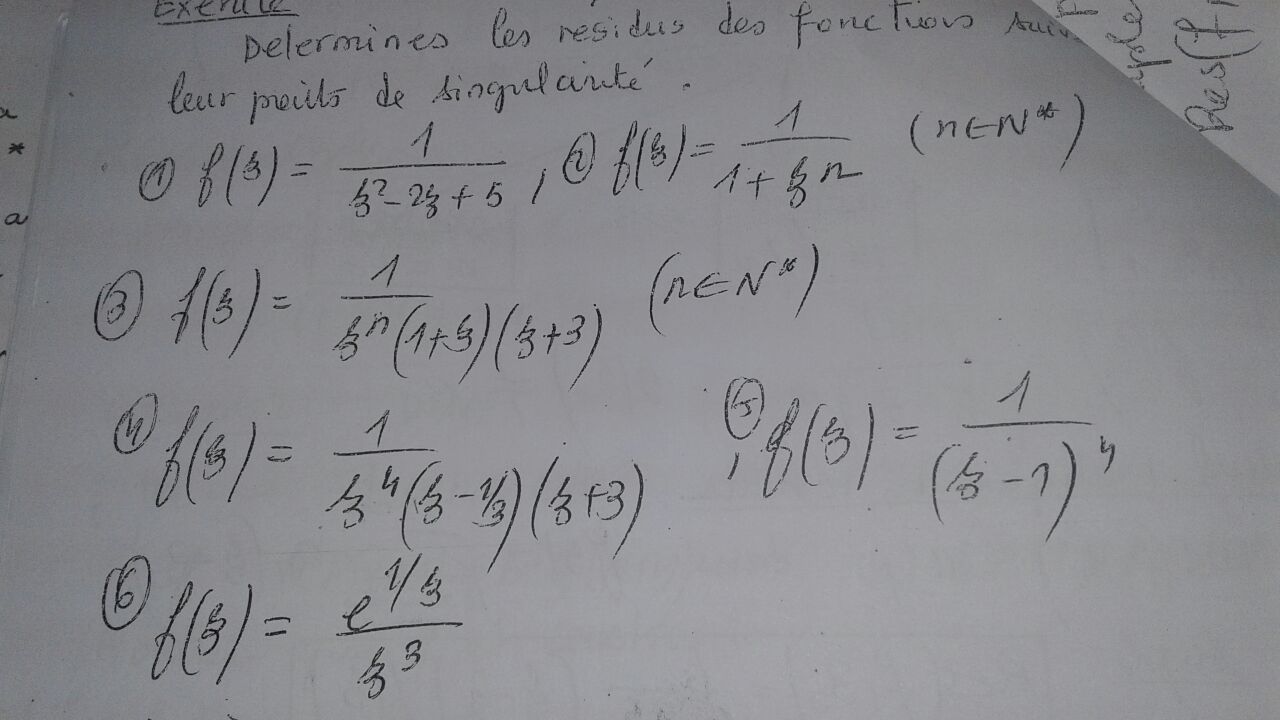 Exercice
Determines les residus des fonctions
leur points de singularité.
① f(z) = 1/(z²-2z+5) , ② f(z) = 1/(1+zⁿ) (n∈N*)
③ f(z) = 1/(zⁿ(1+z)(z+3)) (n∈N*)
④ f(z) = 1/(z⁴(z-1/3)(z+3)) , ⑤ f(z) = 1/(z-1)⁴
⑥ f(z) = e^(1/z)/z³
Res(f,